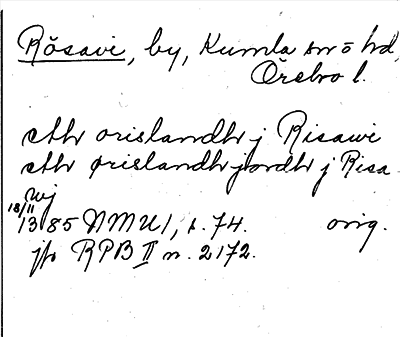 Rösavi, by, Kumla sn o hd,
Örebro l.
ett orislandh j Risawi
ett ørislandh jordh j Risa
wj
18/11
1385 NMU 1, s. 74. orig.
jfr RPB II n. 2172.